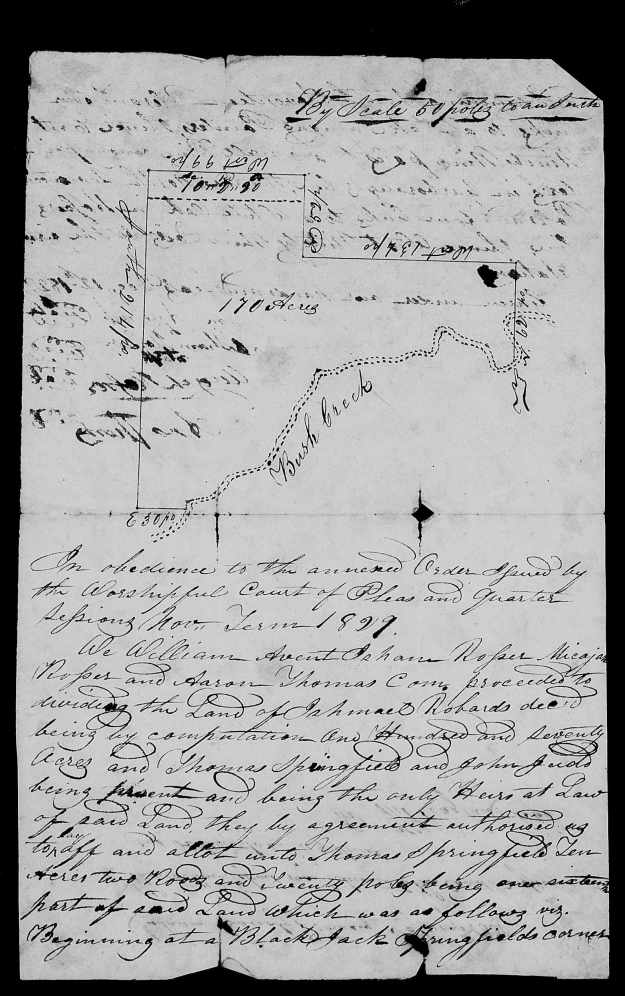 By Scale 50 poles to an Inch
West 99 po
South 214 po
West 134 po
170 Acres
Bush Creek
E 30 po
In obedience to the annexed Order Issued by
the Worshipful Court of Pleas and Quarter
Sessions Nov. Term 1899
We William Avent Isham Rosser Micajah
Rosser and Aaron Thomas Com. proceeded to
dividing the Land of Ishmael Robards decd
being by computation One Hundred and Seventy
Acres and Thomas Springfield and John Judd
being present and being the only Heirs at Law
of said Land, they by agreement authorised us
to lay off and allot unto Thomas Springfield Ten
Acres two Roods and Twenty poles being one sixteenth
part of said Land which was as follows viz.
Beginning at a Black Jack Springfields corner